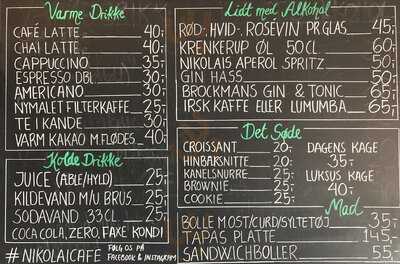 Varme Drikke
CAFÉ LATTE 40,-
CHAI LATTE 40,-
CAPPUCCINO 35,-
ESPRESSO DBL 30,-
AMERICANO 30,-
NYMALET FILTERKAFFE 25,-
TE I KANDE 30,-
VARM KAKAO M.FLØDES. 40,-
Kolde Drikke
JUICE (ÆBLE/HYLD) 25,-
KILDEVAND M/U BRUS 25,-
SODAVAND 33CL 25,-
COCA COLA, ZERO, FAXE KONDI
#NIKOLAICAFE FØLG OS PÅ
FACEBOOK & INSTAGRAM
Lidt med Alkohol
RØD-, HVID-, ROSÉVIN PR GLAS 45,-
KRENKERUP ØL 50 CL 60,-
NIKOLAIS APEROL SPRITZ 50,-
GIN HASS 50,-
BROCKMANS GIN & TONIC 65,-
IRSK KAFFE ELLER LUMUMBA 65,-
Det Søde
CROISSANT 20,-
HINBÆRSNITTE 20,-
KANELSNURRE 25,-
BROWNIE 25,-
COOKIE 25,-
DAGENS KAGE
35,-
LUKSUS KAGE
40,-
Mad
BOLLE M.OST/CURD/SYLTETØJ 35,-
TAPAS PLATTE 145,-
SANDWICHBOLLER 55,-